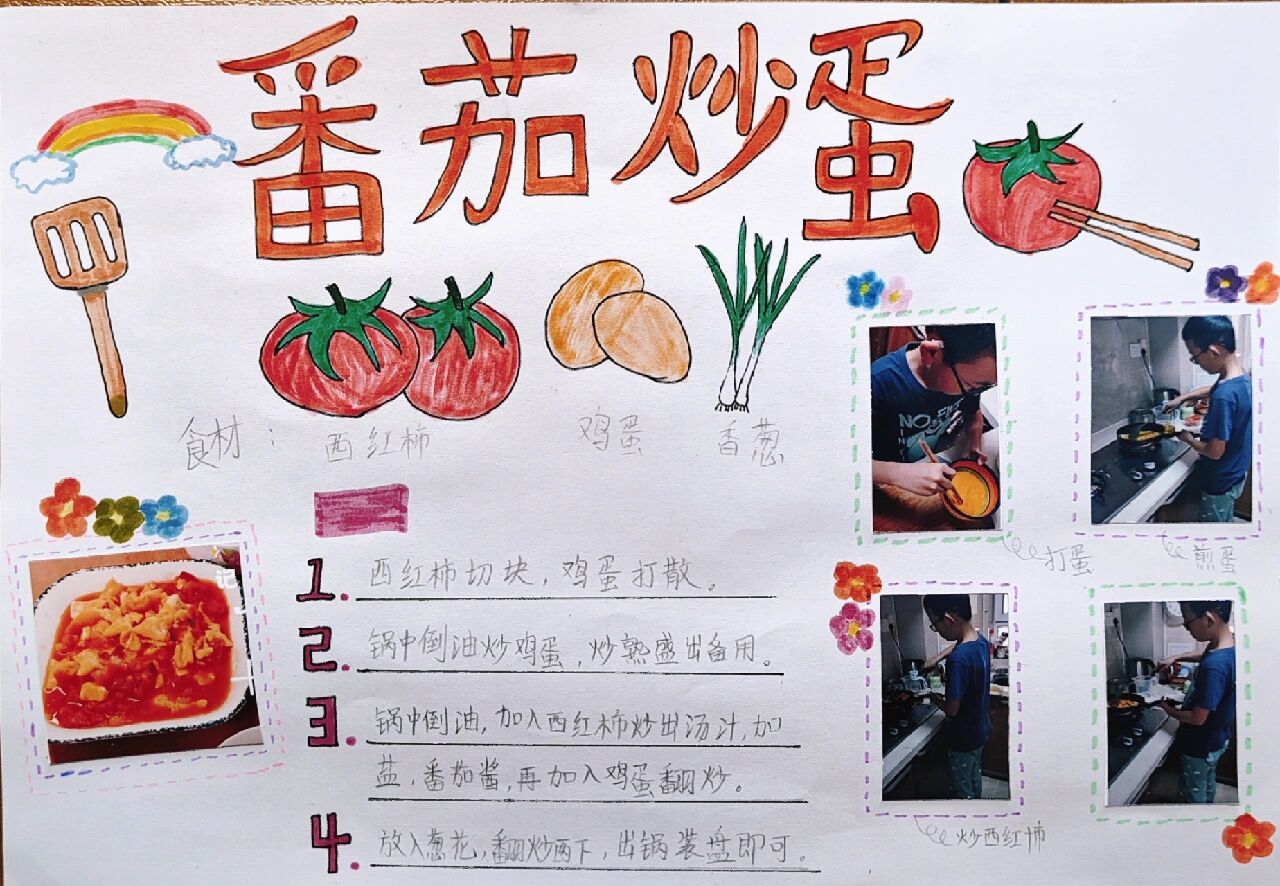 番茄炒蛋
食材：
西红柿
鸡蛋
香葱
1. 西红柿切块，鸡蛋打散。
2. 锅中倒油炒鸡蛋，炒熟盛出备用。
3. 锅中倒油，加入西红柿炒出汤汁，加
盐，番茄酱，再加入鸡蛋翻炒。
4. 放入葱花，翻炒两下，出锅装盘即可。
打蛋
煎蛋
炒西红柿